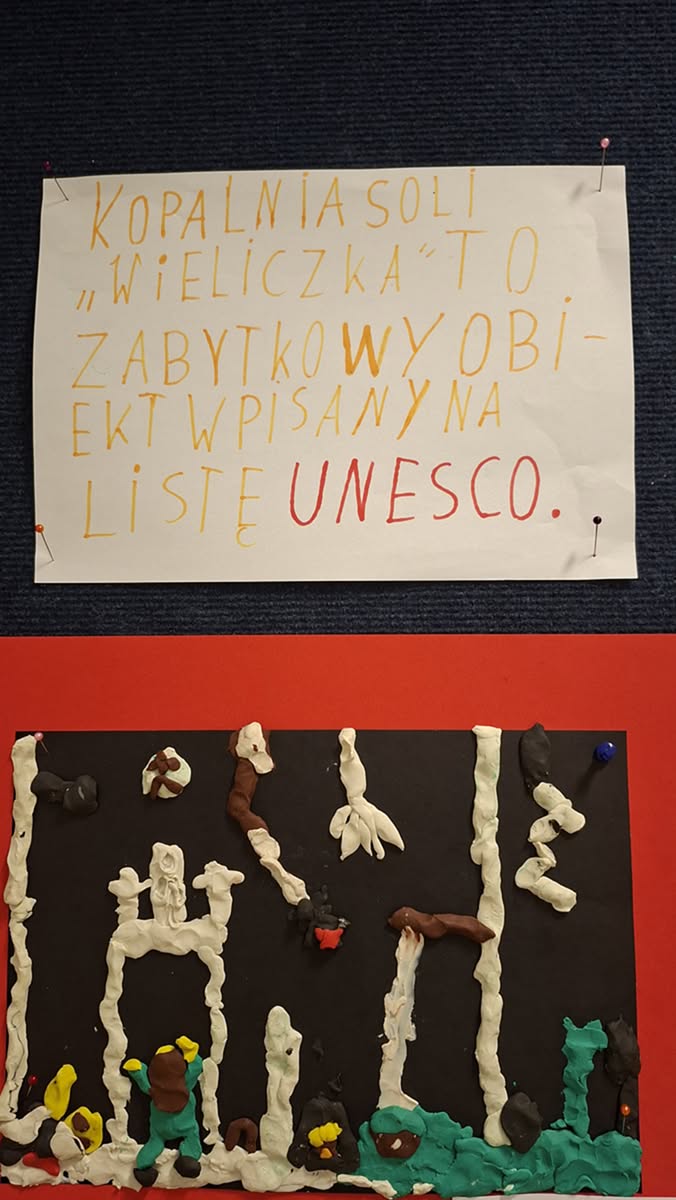 KOPALNIA SOLI
„WIELICZKA" TO
ZABYTKOWY OBI-
EKT WPISANY NA
LISTĘ UNESCO.